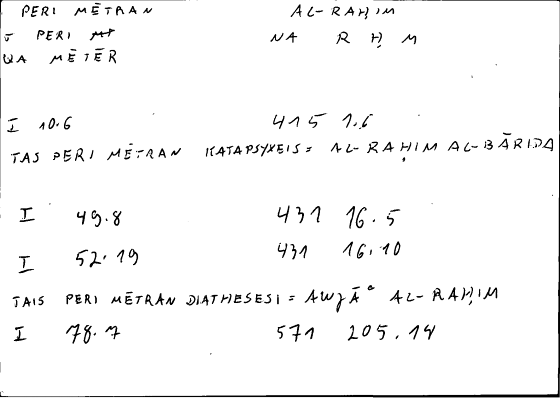 PERI MĒTRAN AL-RAḤIM
J PERI NA R Ḥ M
QA MĒTĒR
I 10.6 415 1.6
TAS PERI MĒTRAN KATAPSYXEIS = AL-RAḤIM AL-BĀRIDA
I 49.8 431 16.5
I 52.19 431 16.10
TAIS PERI MĒTRAN DIATHESESI = AWJĀʿ AL-RAḤIM
I 78.7 571 205.14